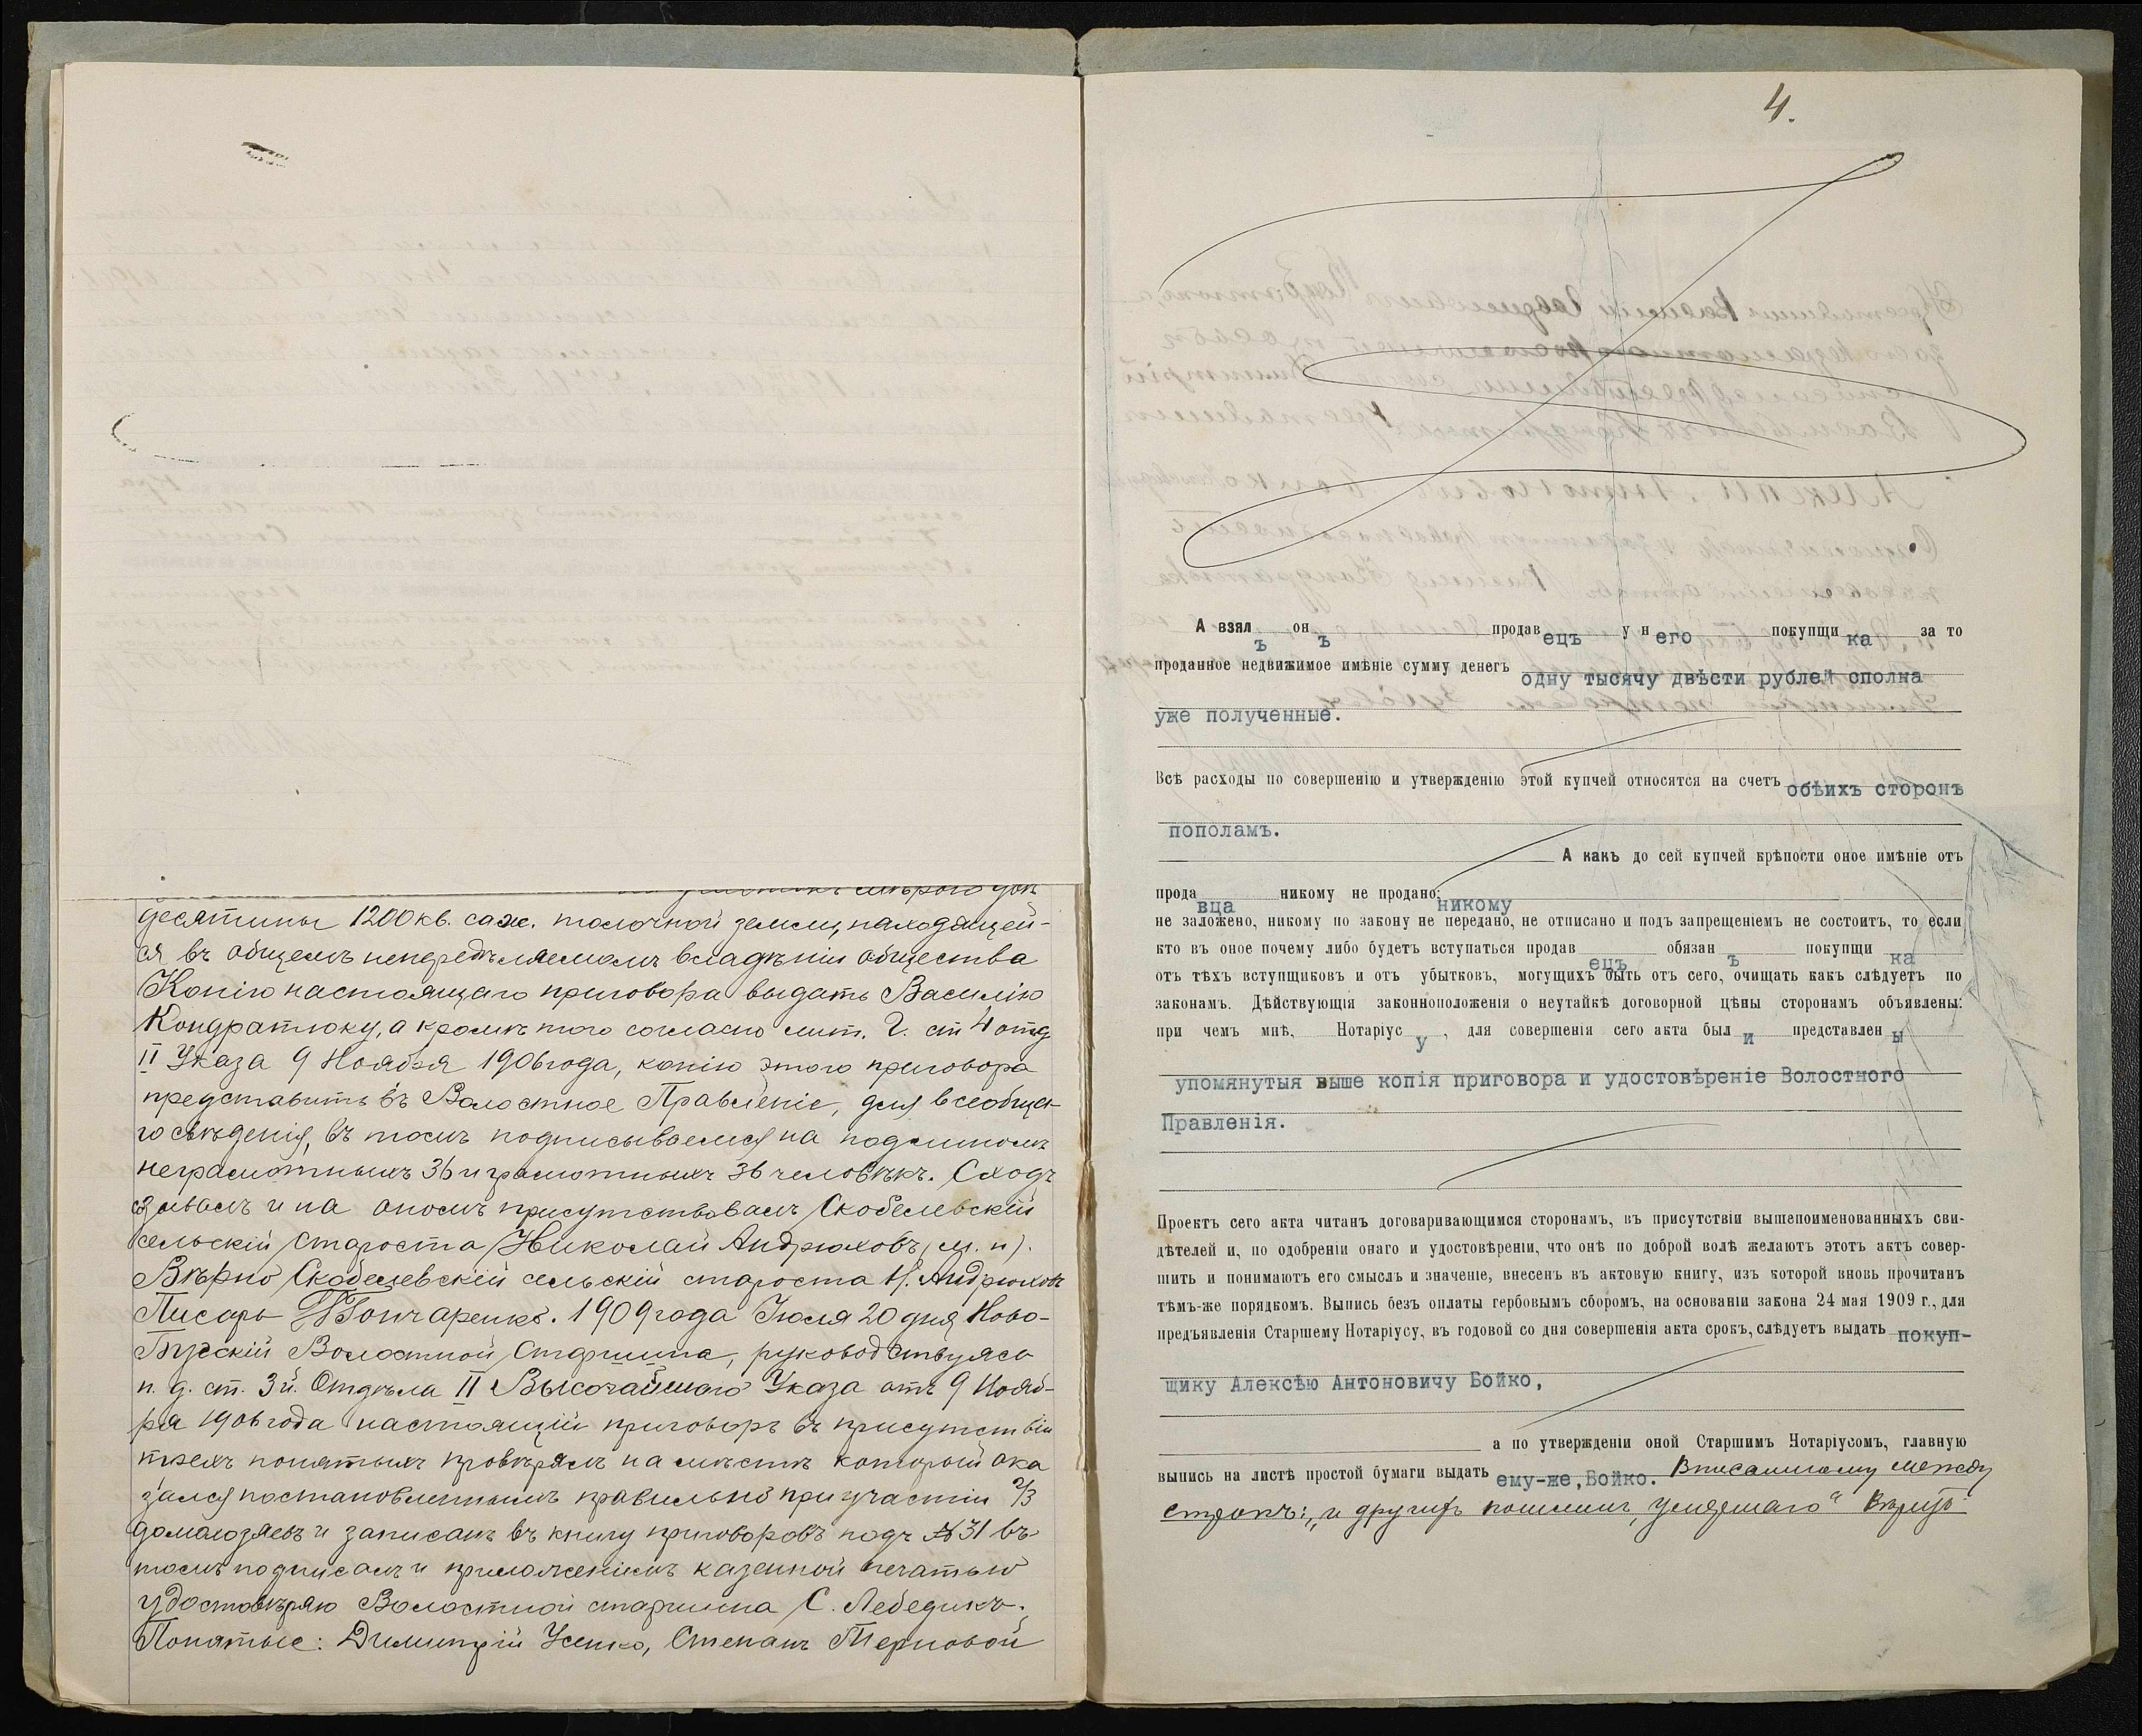 десятины 1200 кв. саж. толочной земли, находящей-
ся въ общемъ непередѣляемомъ владѣніи общества
Копію настоящаго приговора выдать Василію
Кондратюку, а кромѣ того согласно лит. Г. ст 4 отд
II Указа 9 Ноября 1906 года, копію этого приговора
представить въ Волостное Правленіе, для всеобща-
го свѣденія, въ томъ подписываемся на подлиномъ
неграмотныхъ 36 и грамотныхъ 36 человѣкъ. Сходъ
созывалъ и на ономъ присутствовалъ Скобелевскій
сельскій староста Николай Андрюховъ, (м. п).
Вѣрно Скобелевскій сельскій староста Н. Андрюховъ
Писарь Гончаренко. 1909 года Іюля 20 дня Ново-
Бугскій Волостной Старшина, руководствуясь
п. д. ст. 3й. Отдѣла II Высочайшаго Указа отъ 9 Нояб-
ря 1906 года настоящій приговоръ въ присутствіи
трехъ понятыхъ провѣрялъ на мѣстѣ который ока
зался постановленнымъ правильно при участіи 2/3
домохозяевъ и записанъ въ книгу приговоровъ подъ № 31 въ
томъ подписомъ и приложеніемъ казенной печатью
удостовѣряю Волостной старшина С. Лебедикъ.
Понятые: Димитрій Усенко, Степанъ Терновой
4.
А взялъ онъ продавецъ у него покупщика за то
проданное недвижимое имѣніе сумму денегъ одну тысячу двѣсти рублей сполна
уже полученные.
Всѣ расходы по совершенію и утвержденію этой купчей относятся на счетъ обѣихъ сторонъ
пополамъ.
А какъ до сей купчей крѣпости оное имѣніе отъ
продавца никому не продано, никому
не заложено, никому по закону не передано, не отписано и подъ запрещеніемъ не состоитъ, то если
кто въ оное почему либо будетъ вступаться продавецъ обязанъ покупщика
отъ тѣхъ вступщиковъ и отъ убытковъ, могущихъ быть отъ сего, очищать какъ слѣдуетъ по
законамъ. Дѣйствующія законноположенія о неутайкѣ договорной цѣны сторонамъ объявлены:
при чемъ мнѣ, Нотаріусу, для совершенія сего акта были представлены
упомянутыя выше копія приговора и удостовѣреніе Волостного
Правленія.
Проектъ сего акта читанъ договаривающимся сторонамъ, въ присутствіи вышепоименованныхъ сви-
дѣтелей и, по одобреніи онаго и удостовѣреніи, что онѣ по доброй волѣ желаютъ этотъ актъ совер-
шить и понимаютъ его смыслъ и значеніе, внесенъ въ актовую книгу, изъ которой вновь прочитанъ
тѣмъ-же порядкомъ. Выпись безъ оплаты гербовымъ сборомъ, на основаніи закона 24 мая 1909 г., для
предъявленія Старшему Нотаріусу, въ годовой со дня совершенія акта срокъ, слѣдуетъ выдать покуп-
щику Алексѣю Антоновичу Бойко,
а по утвержденіи оной Старшимъ Нотаріусомъ, главную
выпись на листѣ простой бумаги выдать ему-же, Бойко. Вписанному между
строкъ: „и другихъ пошлинъ,